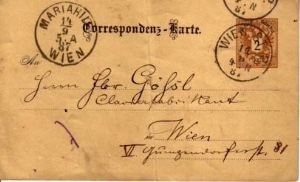 MARIAHILF
14
9
5-A
87
WIEN
Correspondenz-Karte.
WIEN
2
An
Herrn Gößl
Clavierfabrikant
in Wien
VI Gumpendorferstr. 81